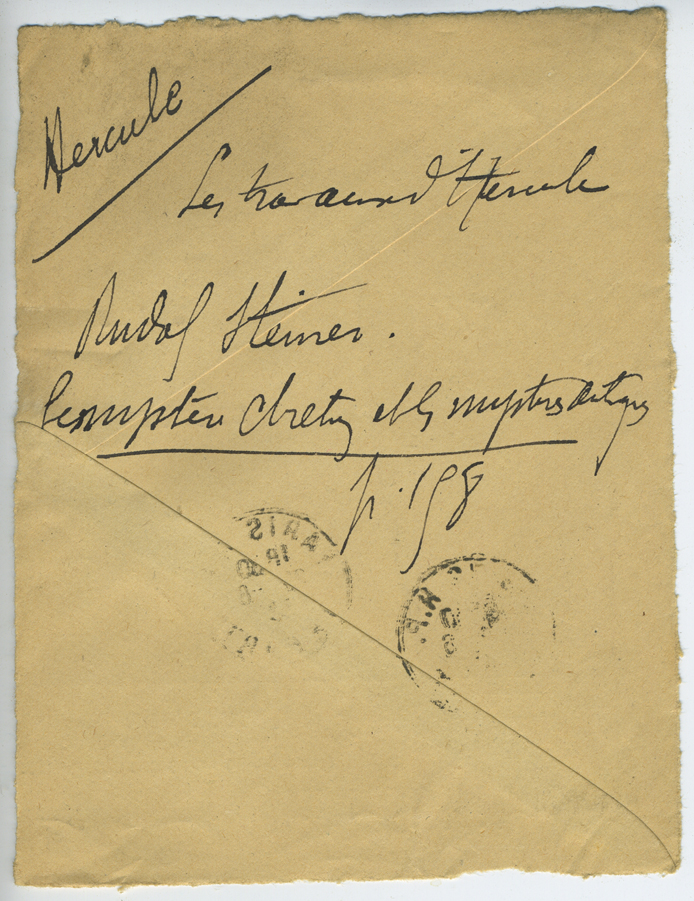 Hercule
Les travaux d'Hercule
Rudolf Steiner.
Le mystère chretien et les mystères antiques
p. 198
PARIS